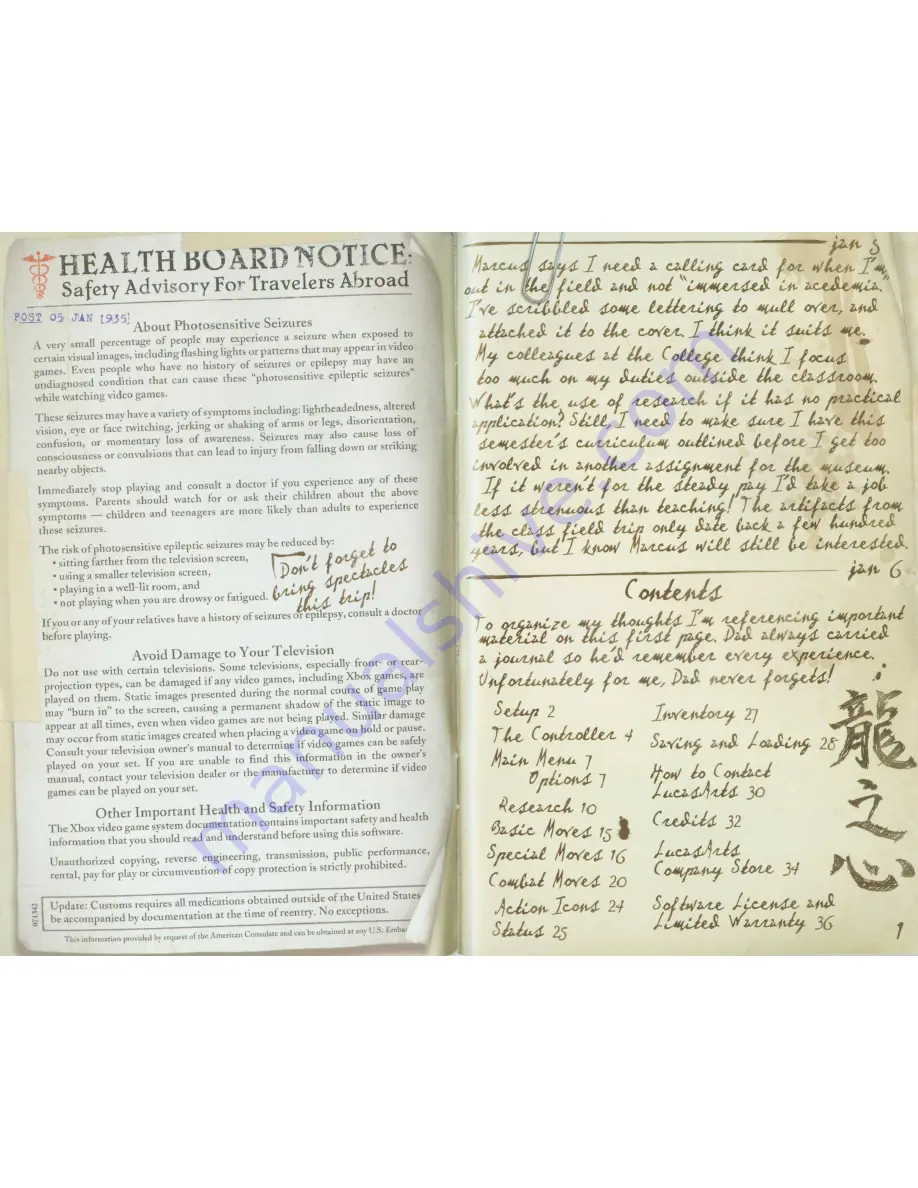 HEALTH BOARD NOTICE:
Safety Advisory For Travelers Abroad
POST 05 JAN [935]
About Photosensitive Seizures
A very small percentage of people may experience a seizure when exposed to
certain visual images, including flashing lights or patterns that may appear in video
games. Even people who have no history of seizures or epilepsy may have an
undiagnosed condition that can cause these “photosensitive epileptic seizures”
while watching video games.
These seizures may have a variety of symptoms including: lightheadedness, altered
vision, eye or face twitching, jerking or shaking of arms or legs, disorientation,
confusion, or momentary loss of awareness. Seizures may also cause loss of
consciousness or convulsions that can lead to injury from falling down or striking
nearby objects.
Immediately stop playing and consult a doctor if you experience any of these
symptoms. Parents should watch for or ask their children about the above
symptoms — children and teenagers are more likely than adults to experience
these seizures.
The risk of photosensitive epileptic seizures may be reduced by:
• sitting farther from the television screen,
• using a smaller television screen,
• playing in a well-lit room, and
• not playing when you are drowsy or fatigued.
Don't forget to
bring spectacles
this trip!
If you or any of your relatives have a history of seizures or epilepsy, consult a doctor
before playing.
Avoid Damage to Your Television
Do not use with certain televisions. Some televisions, especially front- or rear-
projection types, can be damaged if any video games, including Xbox games, are
played on them. Static images presented during the normal course of game play
may “burn in” to the screen, causing a permanent shadow of the static image to
appear at all times, even when video games are not being played. Similar damage
may occur from static images created when placing a video game on hold or pause.
Consult your television owner's manual to determine if video games can be safely
played on your set. If you are unable to find this information in the owner's
manual, contact your television dealer or the manufacturer to determine if video
games can be played on your set.
Other Important Health and Safety Information
The Xbox video game system documentation contains important safety and health
information that you should read and understand before using this software.
Unauthorized copying, reverse engineering, transmission, public performance,
rental, pay for play or circumvention of copy protection is strictly prohibited.
071342
Update: Customs requires all medications obtained outside of the United States
be accompanied by documentation at the time of reentry. No exceptions.
This information provided by request of the American Consulate and can be obtained at any U.S.
jan 5
Marcus says I need a calling card for when I'm
out in the field and not "immersed in acedemia."
I've scribbled some lettering to mull over, and
attached it to the cover. I think it suits me.
My colleagues at the College think I focus
too much on my duties outside the classroom.
What's the use of research if it has no practical
application? Still, I need to make sure I have this
semester's curriculum outlined before I get too
involved in another assignment for the museum.
If it weren't for the steady pay I'd take a job
less strenuous than teaching! The artifacts from
the class field trip only date back a few hundred
years, but I know Marcus will still be interested.
jan 6
Contents
To organize my thoughts I'm referencing important
material on this first page. Dad always carried
a journal so he'd remember every experience.
Unfortunately for me, Dad never forgets!
Setup 2
The Controller 4
Main Menu 7
Options 7
Research 10
Basic Moves 15
Special Moves 16
Combat Moves 20
Action Icons 24
Status 25
Inventory 27
Saving and Loading 28
How to Contact
LucasArts 30
Credits 32
LucasArts
Company Store 34
Software License and
Limited Warranty 36
龍
之
心
1
manualshive.com